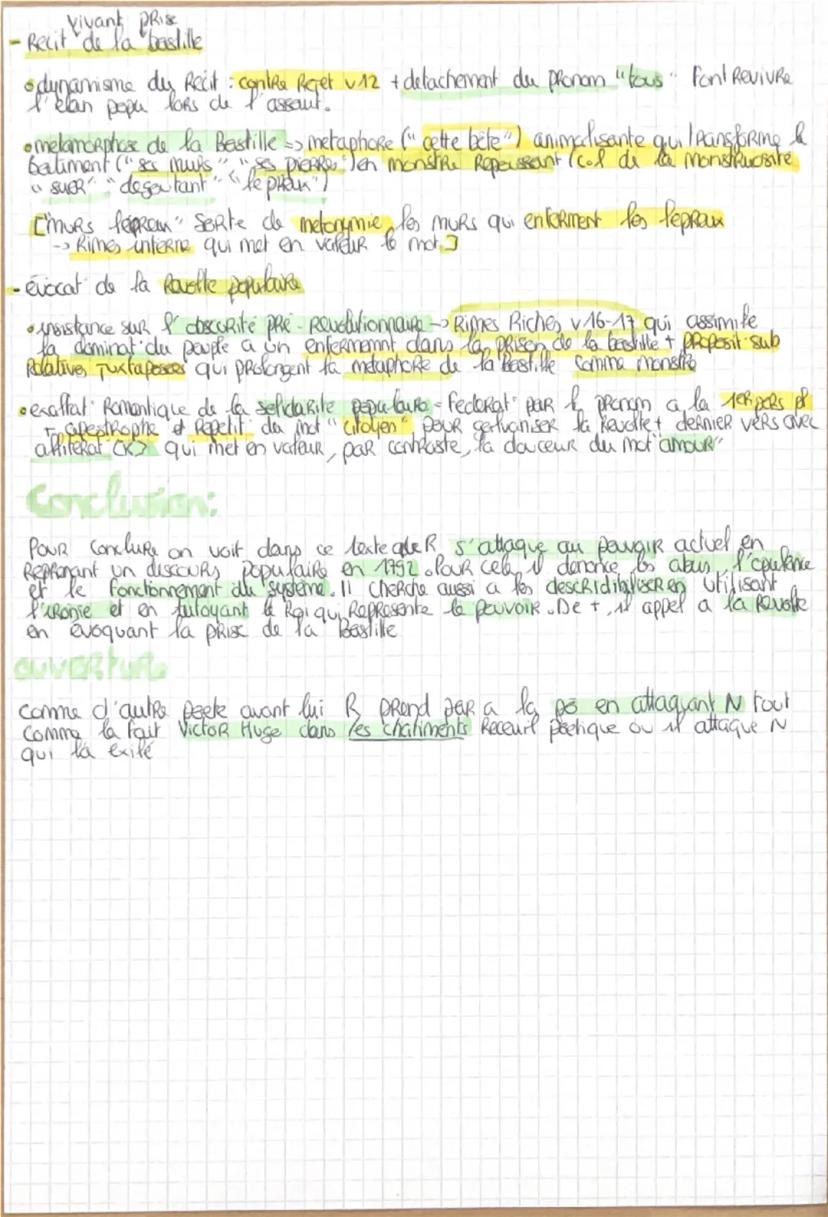 vivant prise
- Récit de la bastille
• dynamisme du Récit : contre Rejet v 12 + detachement du pronom "tous" Font Revivre
l'elan popu lors de l'assaut.
• metamorphose de la Bastille => metaphore ("cette bête") animalisante qui transforme le
batiment ("ses murs" "ses pierre") en monstre Repoussant (col de la monstruosité
"suer" "degoutant" "lepreux")
["murs lepreux" sorte de metonymie, les murs qui enferment les lepreux
-> Rimes interne qui met en valeur le mot]
- évocat° de la Revolte populaire
• insistance sur l'obscurité pré-Revolutionnaire -> Rimes Riches v 16-17 qui assimile
la dominat° du peuple a un enfermemnt dans la prison de la bastille + proposit° sub
Relatives juxtaposées qui prolongent la metaphore de la Bastille comme monstre
• exaltat° Romantique de la solidarite populaire = federat° par le pronom a la 1er pers pl
+ apostrophe et Repetit° du mot "citoyen" pour galvaniser la Revolte + dernier vers avec
alliterat° (K) qui met en valeur, par contraste, la douceur du mot "amour"
Conclusion:
Pour conclure on voit dans ce texte que R s'attaque au pouvoir actuel en
Reprenant un discours populaire en 1792. Pour cela, il denonce les abus, l'opulence
et le fonctionnement du système. Il cherche aussi a les descridibiliser en utilisant
l'ironie et en tutoyant le Roi qui Represente le pouvoir. De +, il appel a la Revolte
en évoquant la prise de la Bastille
ouverture
comme d'autre poete avant lui R prend par a la po en attaquant N tout
comme la fait Victor Hugo dans les chatiments Receuil poetique ou il attaque N
qui la exilé